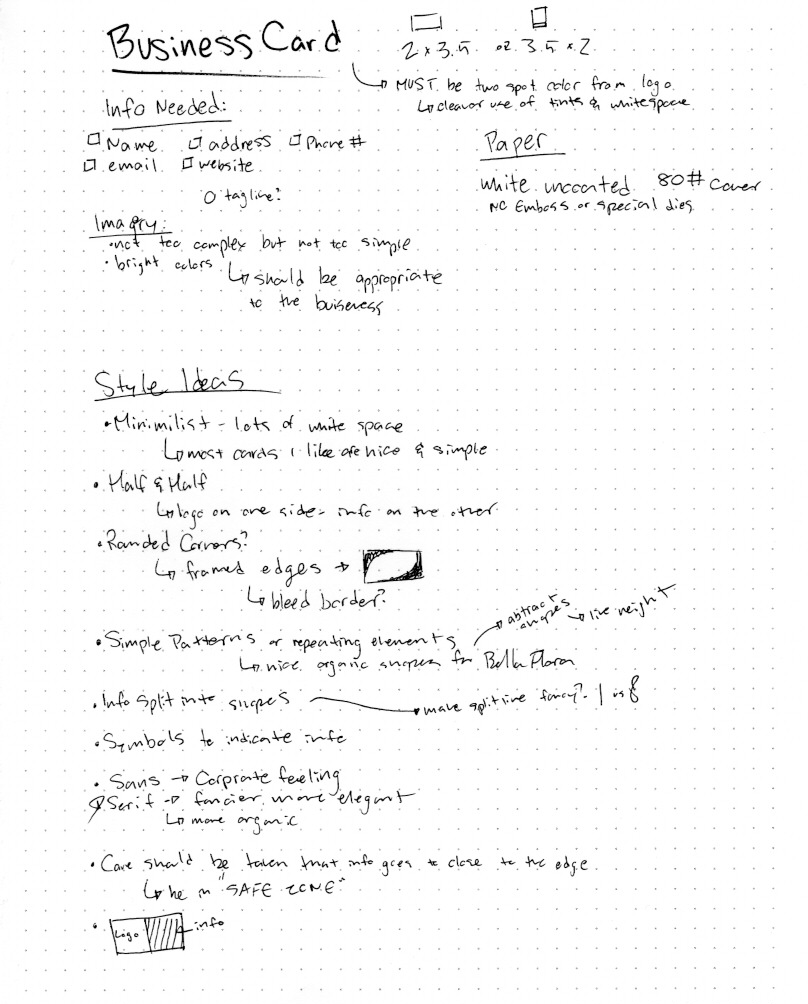 Business Card
2 x 3.5 or 3.5 x 2
MUST be two spot color from logo
cleavor use of tints & whitespace
Info Needed:
Name address Phone #
email website
tagline?
Paper
white uncoated 80# cover
NO Emboss or special dies
Imagry:
not too complex but not too simple
bright colors
should be appropriate
to the buiseness
Style Ideas
Minimilist - lots of white space
most cards I like are nice & simple
Half & Half
logo on one side - info on the other
Rounded Corners?
framed edges
bleed border?
Simple Patterns or repeating elements
abtract
shapes
line weight
nice organic shapes for Bella Flora
Info split into shapes
make split line fancy? | vs
Symbols to indicate info
Sans → Corprate feeling
Serif → fancier more elegant
more organic
Care should be taken that info goes to close to the edge
be in "SAFE ZONE"
Logo info